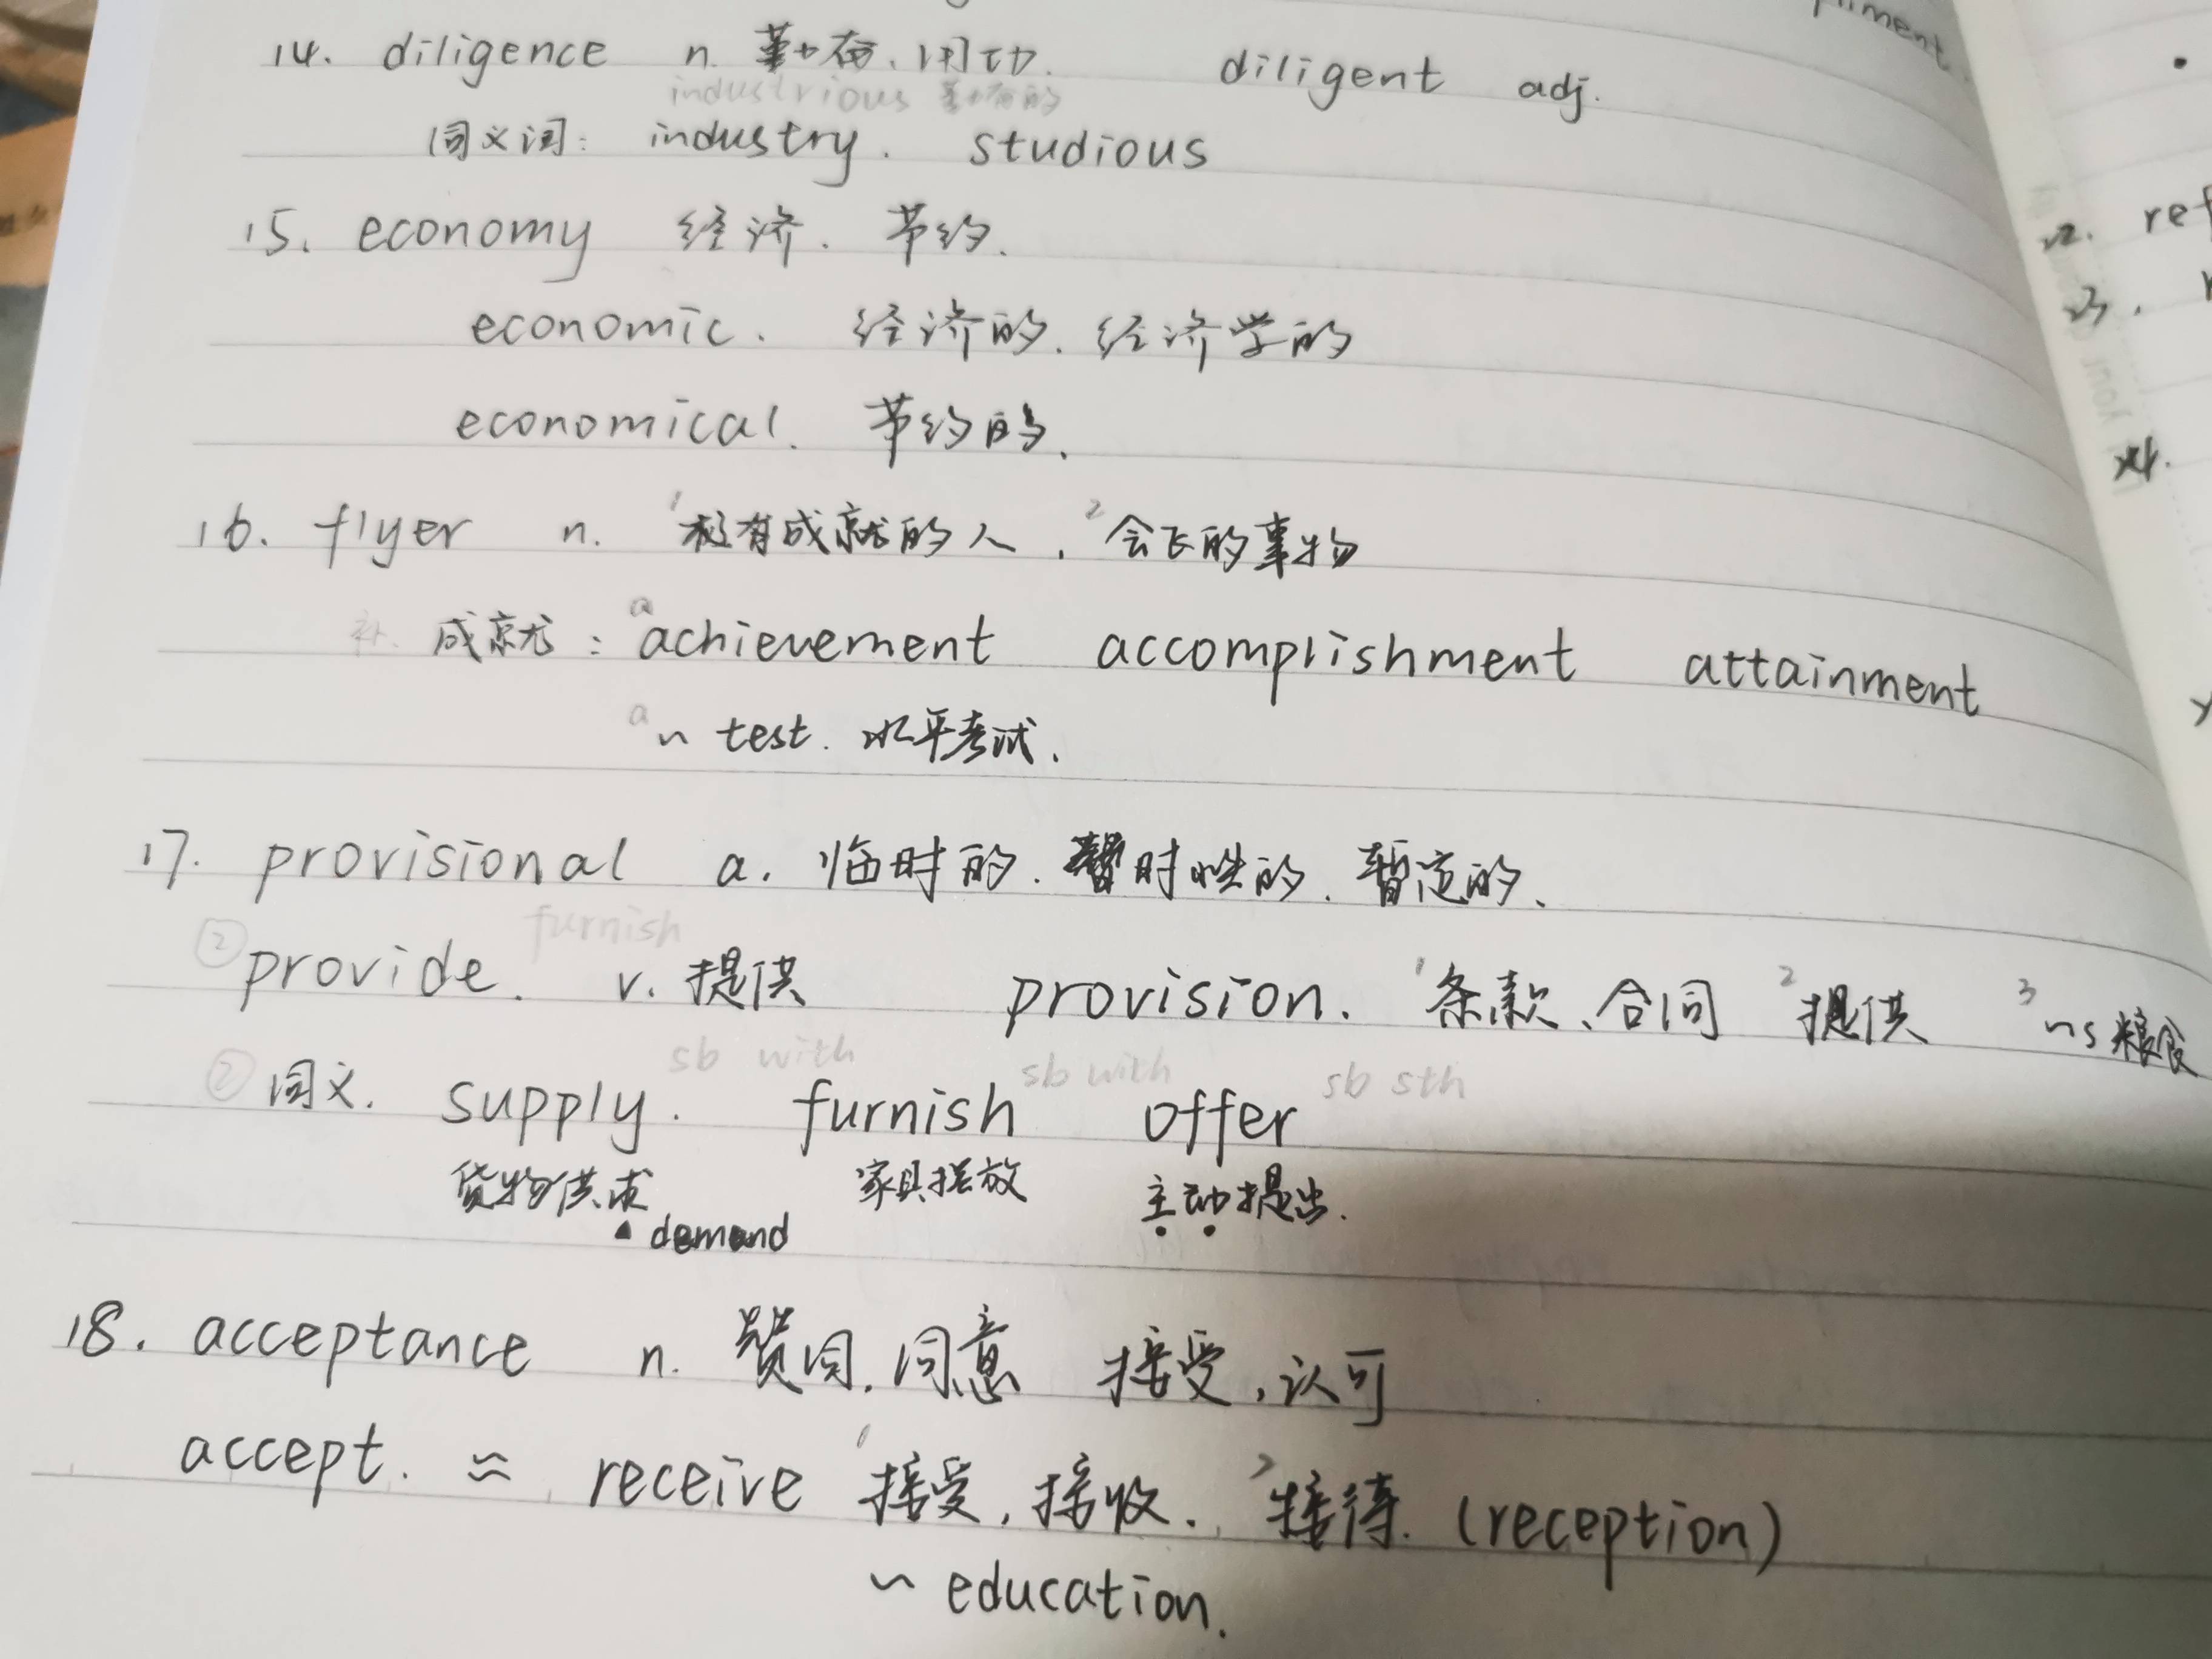 14. diligence n. 勤奋、用功. diligent adj.
industrious 勤奋的
同义词: industry. studious
15. economy 经济. 节约.
economic. 经济的. 经济学的
economical. 节约的.
16. flyer n. 1 极有成就的人, 2 会飞的事物
补. 成就: a achievement accomplishment attainment
a ~ test. 水平考试.
17. provisional a. 临时的. 暂时性的. 暂定的.
furnish
② provide. v. 提供 provision. 1 条款、合同 2 提供 3 ~s 粮食
sb with sb with sb sth
② 同义. supply. furnish offer
货物供求 家具摆放 主动提出.
▲ demand
18. acceptance n. 赞同, 同意 接受, 认可
accept. ≈ receive 1 接受, 接收. 2 接待. (reception)
~ education.
22. ref
23.
24.